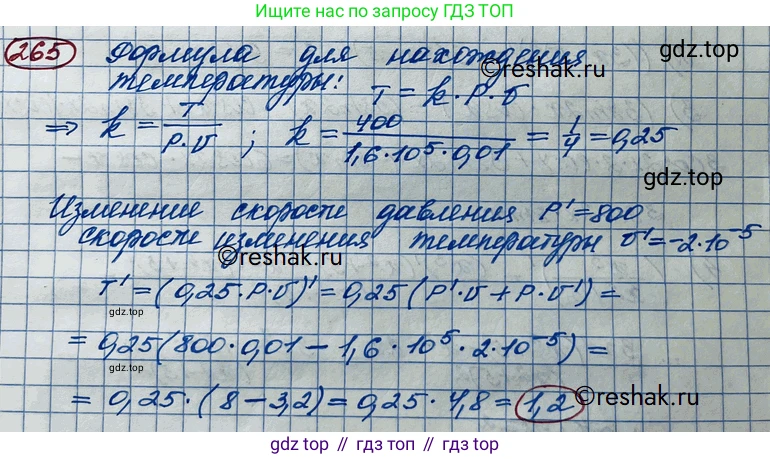 Ищите нас по запросу ГДЗ ТОП
265 Формула для нахождения gdz.top
температуры: T = k · P · v ©reshak.ru
⇒ k = T/(P · v) ; k = 400/(1,6 · 10⁵ · 0,01) = 1/4 = 0,25
gdz.top
Изменение скорости давления P' = 800
скорости изменения температуры v' = -2 · 10⁻⁵
©reshak.ru
T' = (0,25 · P · v)' = 0,25 (P' · v + P · v') =
gdz.top
= 0,25 (800 · 0,01 − 1,6 · 10⁵ · 2 · 10⁻⁵) =
= 0,25 · (8 − 3,2) = 0,25 · 4,8 = 1,2 ©reshak.ru
gdz.top
gdz.top // гдз топ // гдз.top